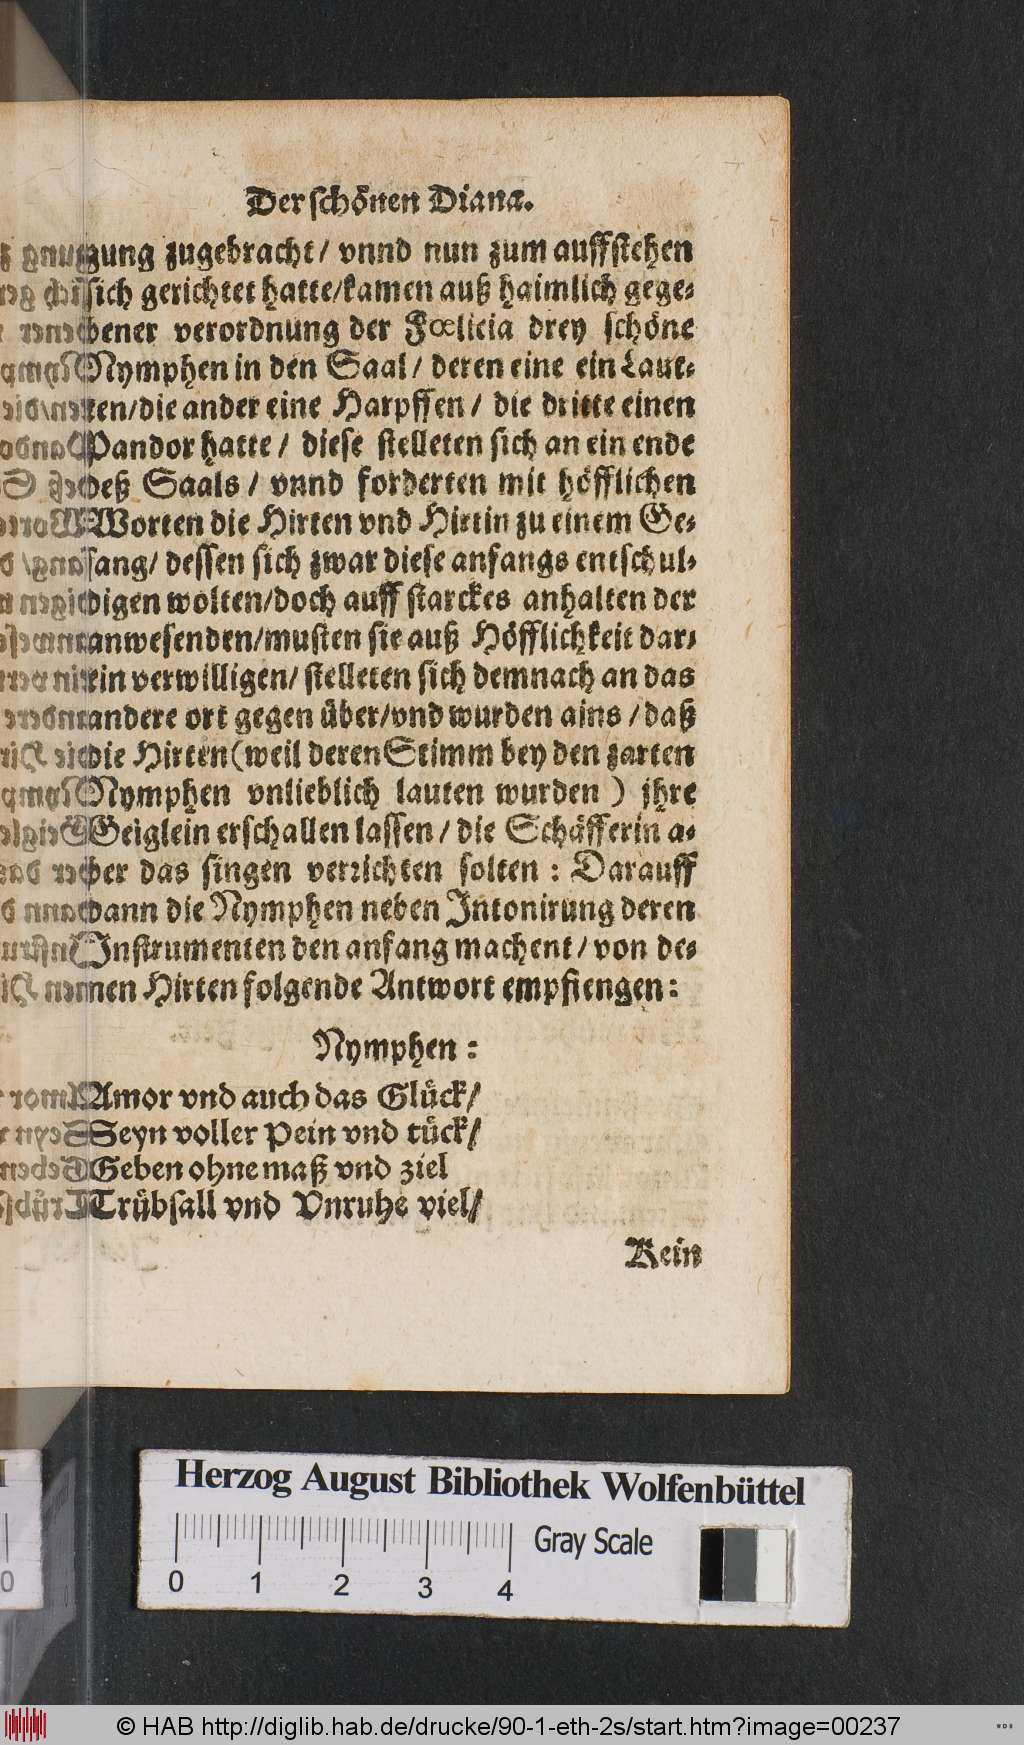 Der schönen Diana.
gung zugebracht/ vnnd nun zum auffstehen
sich gerichtet hatte/kamen auß haimlich gege-
bener verordnung der Fœlicia drey schöne
Nymphen in den Saal/ deren eine ein Laut-
ten/die ander eine Harpffen/ die dritte einen
Pandor hatte/ diese stelleten sich an ein ende
deß Saals/ vnnd forderten mit höfflichen
Worten die Hirten vnd Hirtin zu einem Ge-
sang/ dessen sich zwar diese anfangs entschul-
digen wolten/doch auff starckes anhalten der
anwesenden/musten sie auß Höfflichkeit dar-
ein verwilligen/ stelleten sich demnach an das
andere ort gegen über/vnd wurden ains/daß
die Hirten (weil deren Stimm bey den zarten
Nymphen vnlieblich lauten wurden) jhre
Geiglein erschallen lassen/ die Schäfferin a-
ber das singen verrichten solten: Darauff
dann die Nymphen neben Intonirung deren
Instrumenten den anfang machent/von de-
nen Hirten folgende Antwort empfiengen:
Nymphen:
Amor vnd auch das Glück/
Seyn voller Pein vnd tück/
Geben ohne maß vnd ziel
Trübsall vnd Vnruhe viel/
Kein
Herzog August Bibliothek Wolfenbüttel
Gray Scale
0 1 2 3 4
© HAB http://diglib.hab.de/drucke/90-1-eth-2s/start.htm?image=00237